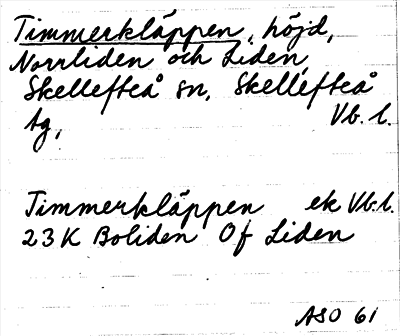 Timmerkläppen, höjd,
Norrliden och Liden,
Skellefteå sn, Skellefteå
tg, Vb.l.
Timmerkläppen ek Vb.l.
23K Boliden Of Liden
ASO 61